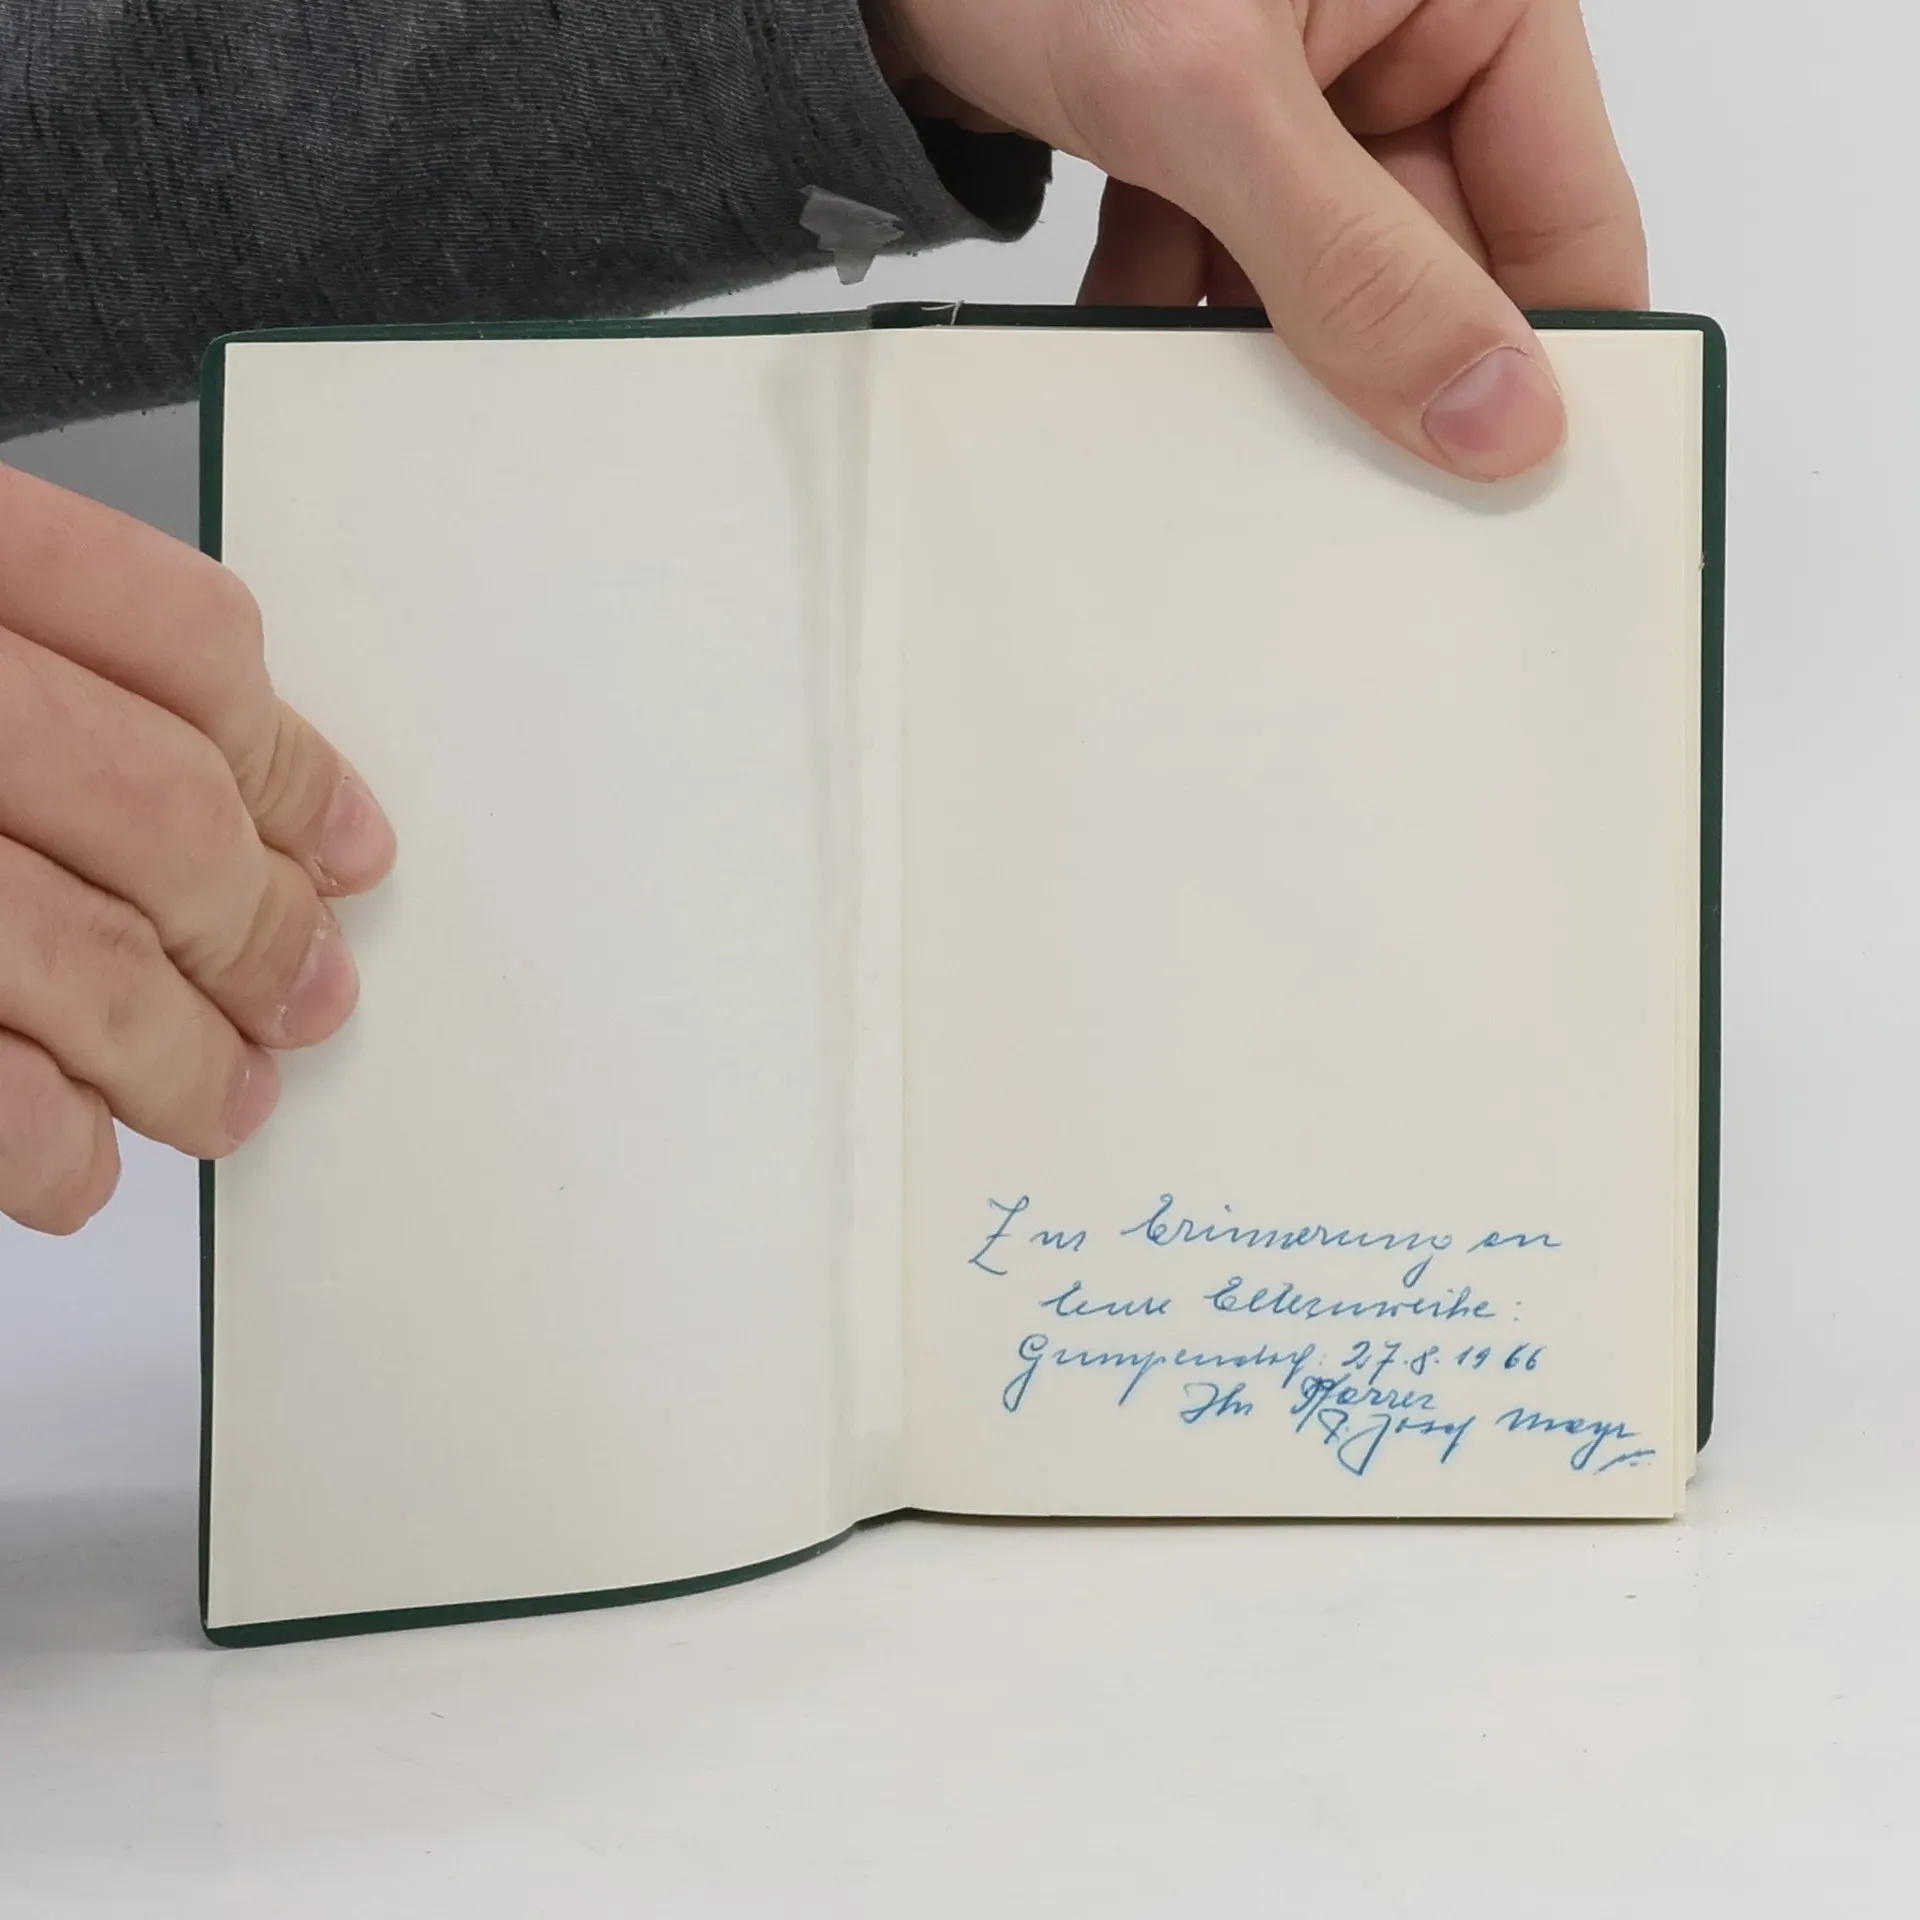 Zur Erinnerung an
eure Elternweihe:
Gumpendorf: 27.8.1966
Ihr Pfarrer
P. Josef Mayr